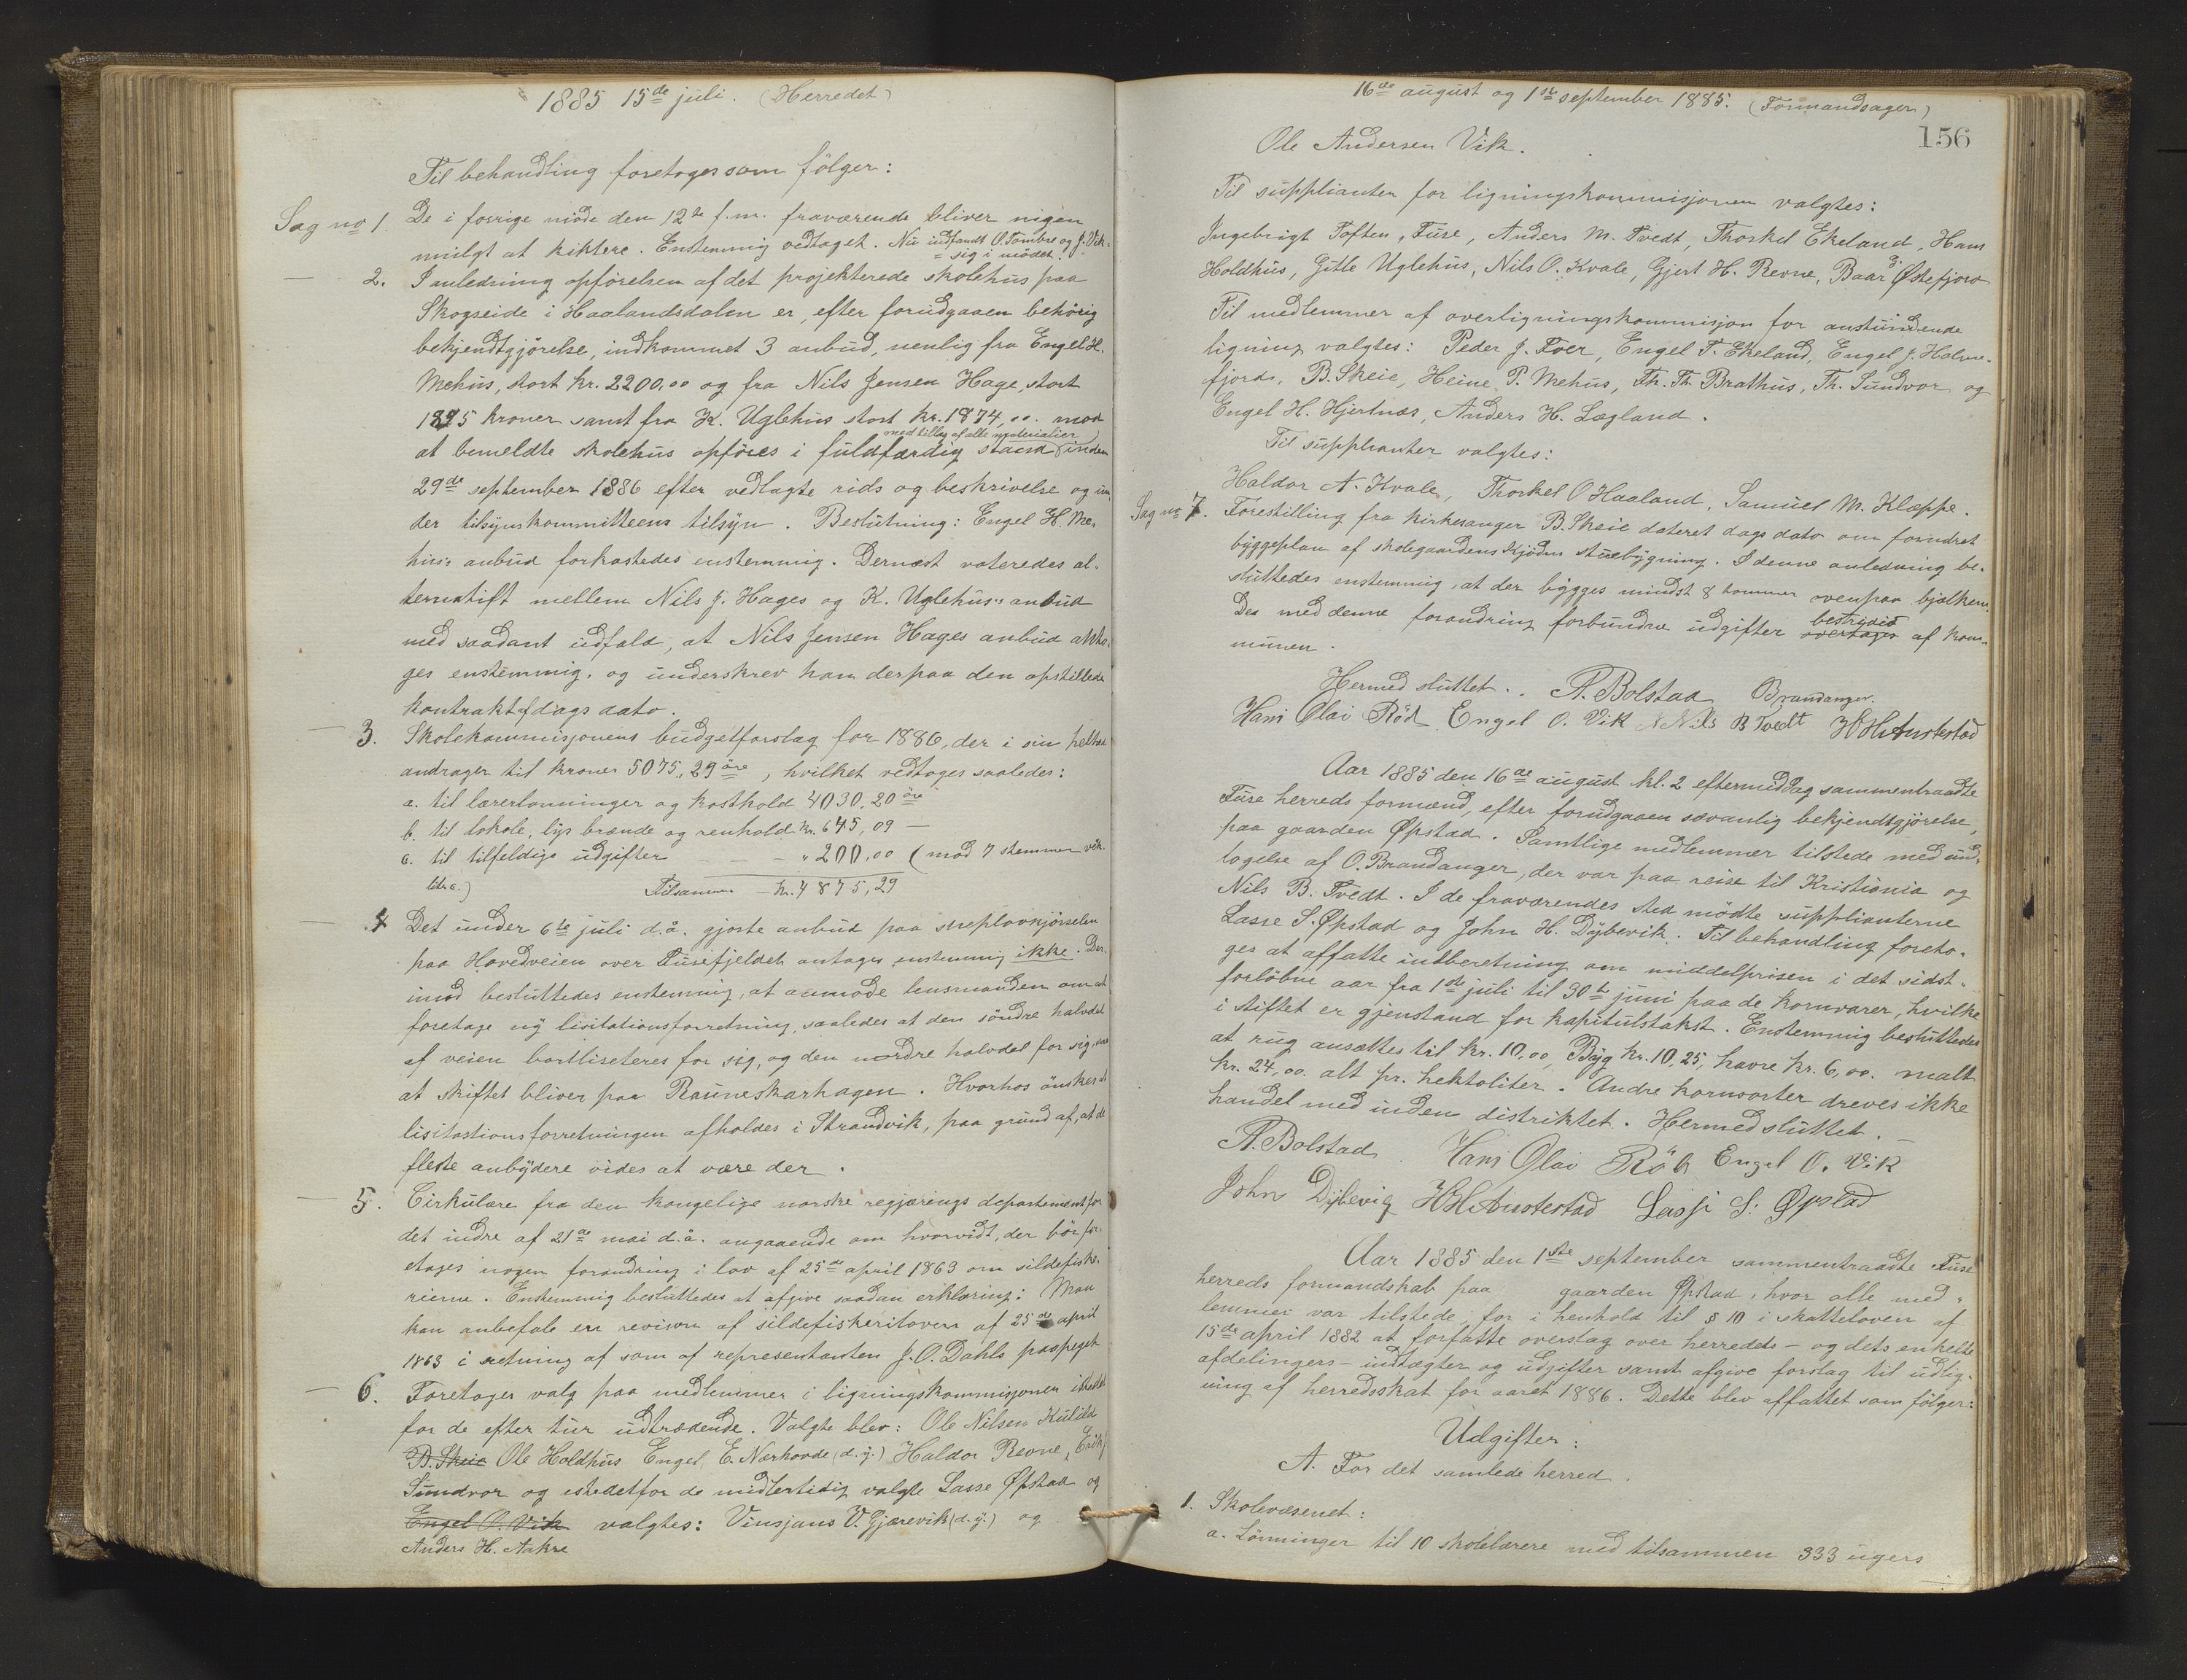 1885 15de juli. (Herredet)
Til behandling foretoges som følger:
Sag no 1. De i forrige møde den 12te f.m. fraværende bliver nigen
muligt at kiktere. Enstemmig vedtaget. Nu indfandt O. Tombre og J. Vik.
= sig i mødet.
2. I anledning opførelsen af det projekterede skolehus paa
Skogseide i Haalandsdalen er, efter forudgaaen behørig
bekjendtgjørelse, indkommet 3 anbud, nemlig fra Engel H.
Mehus, stort kr. 2200,00 og fra Nils Jensen Hage, stort
1895 kroner samt fra K. Uglehus stort kr. 1874,00. mod
med tillæg af alle materialier
at bemeldte skolehus opføres i fuldfærdig stand inden
29de september 1886 efter vedlagte rids og beskrivelse og un-
der tilsynskommitteens tilsyn. Beslutning: Engel H. Me-
hus's anbud forkastedes enstemmig. Dernæst voteredes al-
ternatift mellem Nils J. Hages og K. Uglehus's anbud
med saadant udfald, at Nils Jensen Hages anbud anto-
ges enstemmig, og underskrev han derpaa den opstillede
kontrakt af dags dato.
3. Skolekommisjonens budgetforslag for 1886, der i sin helhed
andrager til kroner 5075,29 øre, hvilket vedtoges saaledes:
a. til lærerlønninger og kosthold 4030,20 øre
b. til lokale, lys brænde og renhold kr. 645,09 —
c. til tilfeldige udgifter - " 200,00 (mod 7 stemmer ved.
litr c.) Tilsammen — kr. 4875,29
4 Det under 6te juli d.å. gjorte anbud paa sneplovkjørselen
paa Hovedveien over Fusefjeldet antages enstemmig ikke. Der-
imod besluttedes enstemmig, at anmode lensmanden om at
foretage ny lisitationsforretning, saaledes at den søndre halvdel
af veien bortliseteres for sig, og den nordre halvdel for sig,
at skiftet bliver paa Rauneskarhagen. Hvorhos ønskes at
lisitastionsforretningen afholdes i Strandvik, paa grund af, at de
fleste anbydere vides at være der.
5. Cirkulære fra den kongelige norske regjærings departement for
det indre af 21de mai d.å. angaaende om hvorvidt, der bør for-
etages nogen forandring i lov af 25de april 1863 om sildefiske-
rierne. Enstemmig besluttedes at afgive saadan erklæring: Man
kan anbefale en revision af sildefiskeriloven af 25de april
1863 i retning af som af representanten J. O. Dahls paapeget
6. Foretoges valg paa medlemmer i ligningskommisjonen istedet
for de efter tur udtrædende. Valgte blev: Ole Nilsen Kulild
B. Skeie Ole Holdhus Engel E. Nærhovde (d.y.) Haldor Revne, Erik
Sundvor og istedetfor de midlertidig valgte Lasse Øpstad og
Engel O. Vik valgtes: Vinsjans V. Gjærevik (d.y.) og
Anders H. Aakre
16de august og 1ste september 1885. (Formandsager)
156
Ole Andersen Vik.
Til supplianter for ligningskommisjonen valgtes:
Ingebrigt Toften, Fuse, Anders M. Tvedt, Thorkel Ekeland, Hans
Holdhus, Gitle Uglehus, Nils O. Kvale, Gjert H. Revne, Baar Østefjord
Til medlemmer af overligningskommisjon for anstundende
ligning valgtes: Peder J. Foer, Engel T. Ekeland, Engel J. Holme-
fjord, B. Skeie, Heine P. Mehus, Th. Th. Brathus, Th. Sundvor og
Engel H. Hjertnæs, Anders H. Lægland.
Til supplianter valgtes:
Haldor A. Kvale, Thorkel O Haaland, Samuel M. Kleppe.
Sag no 7. Forestilling fra kirkesanger B. Skeie dateret dags dato om forandret
byggeplan af skolegaardens Kjødns stuebygning. I denne anledning be-
sluttedes enstemmig, at der bygges mindst 8 tommer ovenpaa bjælkerne.
De med denne forandring forbundne udgifter overtages bestrides af kom-
munen.
Hermed sluttet. A. Bolstad Brandanger.
Hans Olai Röd Engel O. Vik Nils B Tvedt H H Austestad
Aar 1885 den 16de august kl. 2 eftermiddag sammentraadte
Fuse herreds formænd, efter forudgaaen sævanlig bekjendtgjørelse,
paa gaarden Øpstad. Samtlige medlemmer tilstede med und-
tagelse af O. Brandanger, der var paa reise til Kristiania og
Nils B. Tvedt. I de fraværendes sted mødte supplianterne
Lasse S. Øpstad og John H. Dybevik. Til behandling foreto-
ges at affatte indberetning om middelprisen i det sidst-
forløbne aar fra 1ste juli til 30te juni paa de kornvarer, hvilke
i stiftet er gjenstand for kapitulstakst. Enstemmig besluttedes
at rug ansættes til kr. 10,00, Byg kr. 10,25, havre kr. 6,00. malt
kr. 24,00. alt pr. hektoliter. Andre kornsorter dreves ikke
handel med inden distriktet. Hermed sluttet. —
A. Bolstad Hans Olai Röd Engel O. Vik
John Dybevig H H Austestad Lasse S. Øpstad
Aar 1885 den 1ste september sammentraadte Fuse
herreds formandskab paa gaarden Øpstad, hvor alle med-
lemmer var tilstede, for i henhold til § 10 i skatteloven af
15de april 1882 at forfatte overslag over herredets — og dets enkelte
afdelingers — indtægter og udgifter samt afgive forslag til udlig-
ning af herredsskat for aaret 1886. Dette blev affattet som følger:
Udgifter:
A. For det samlede herred.
1. Skolevæsenet:
a. Lønninger til 10 skolelærere med tilsammen 333 ugers